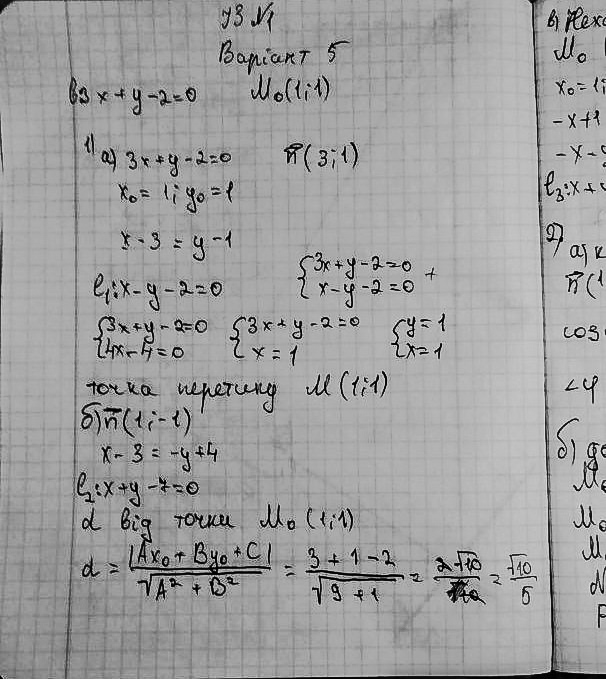 УЗ №1
Варіант 5
3x+y-2=0 M₀(1;1)
1) а) 3x+y-2=0 n̅(3;1)
x₀=1; y₀=1
x-3=y-1
l₁: x-y-2=0 {3x+y-2=0 x-y-2=0 +
{3x+y-2=0 4x-4=0 {3x+y-2=0 x=1 {y=1 x=1
точка перетину M(1;1)
б) n̅(1;-1)
x-3=-y+4
l₂: x+y-7=0
d від точки M₀(1;1)
d = |Ax₀+By₀+C| / √A²+B² = 3+1-2 / √9+1 = 2√10 / 10 = √10 / 5
в)
M₀
x₀=1;
-x+1
-x-y
l₃: x+
2)
а) к
n̅(1
cos
∠φ
б) до
M₀
M₀
M